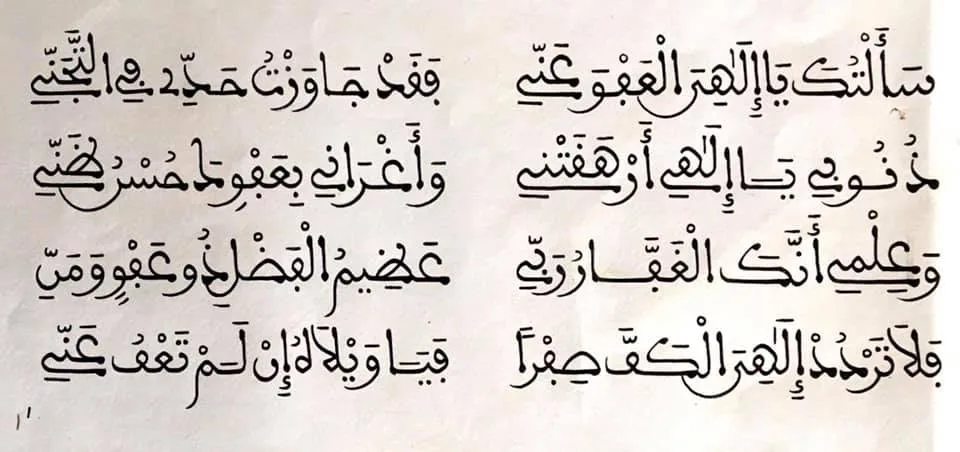 سَأَلْتُكَ يَا إِلَٰهِيَ الْعَفْوَ عَنِّي فَقَدْ جَاوَزْتُ حَدِّي فِي التَّجَنِّي
ذُنُوبِي يَا إِلَٰهِي أَرْهَقَتْنِي وَأَغْرَانِي بِعَفْوِكَ حُسْنُ ظَنِّي
وَعِلْمِي أَنَّكَ الْغَفَّارُ رَبِّي عَظِيمُ الْفَضْلِ ذُو عَفْوٍ وَمَنِّ
فَلَا تَرْدُدْ إِلَٰهِيَ الْكَفَّ صِفْرًا فَيَا وَيْلَاهُ إِنْ لَمْ تَعْفُ عَنِّي